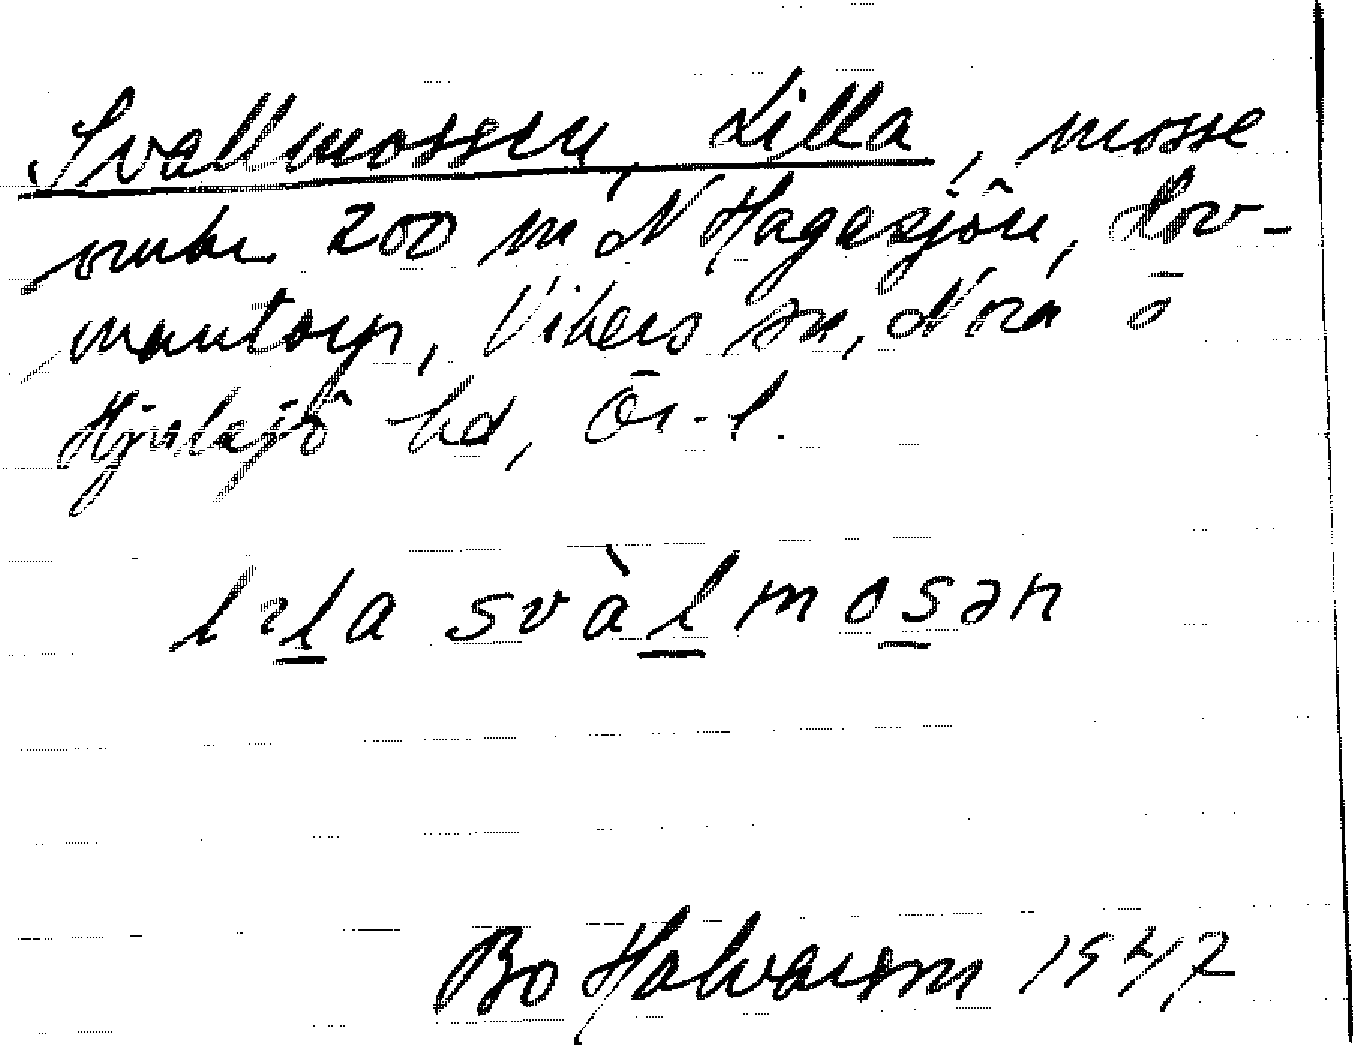 Svallmossen, Lilla, mosse
omkr 200 m N Hagasjön, Hov-
mantorp, Vikers sn, Nora o
Hjulsjö hd, Ör.l.
lɪla svàlmosən
Bo Halvarson 1947